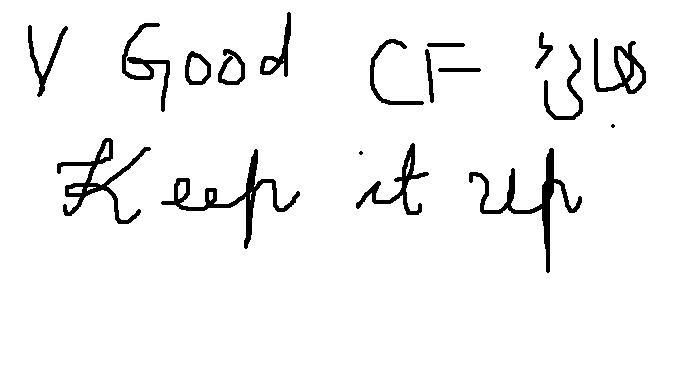 V Good CF
Keep it up